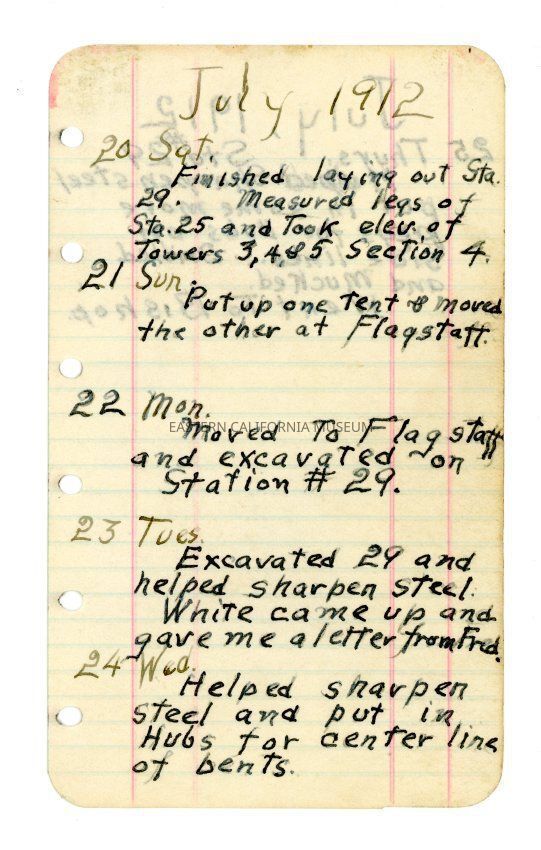 July 1912
20 Sat.
Finished laying out Sta.
29. Measured legs of
Sta. 25 and Took elev. of
Towers 3, 4 & 5 Section 4.
21 Sun.
Put up one tent & moved
the other at Flagstaff.
22 Mon.
EASTERN CALIFORNIA MUSEUM
Moved To Flagstaff
and excavated on
Station # 29.
23 Tues.
Excavated 29 and
helped sharpen steel.
White came up and
gave me a letter from Fred.
24 Wed.
Helped sharpen
steel and put in
Hubs for center line
of bents.